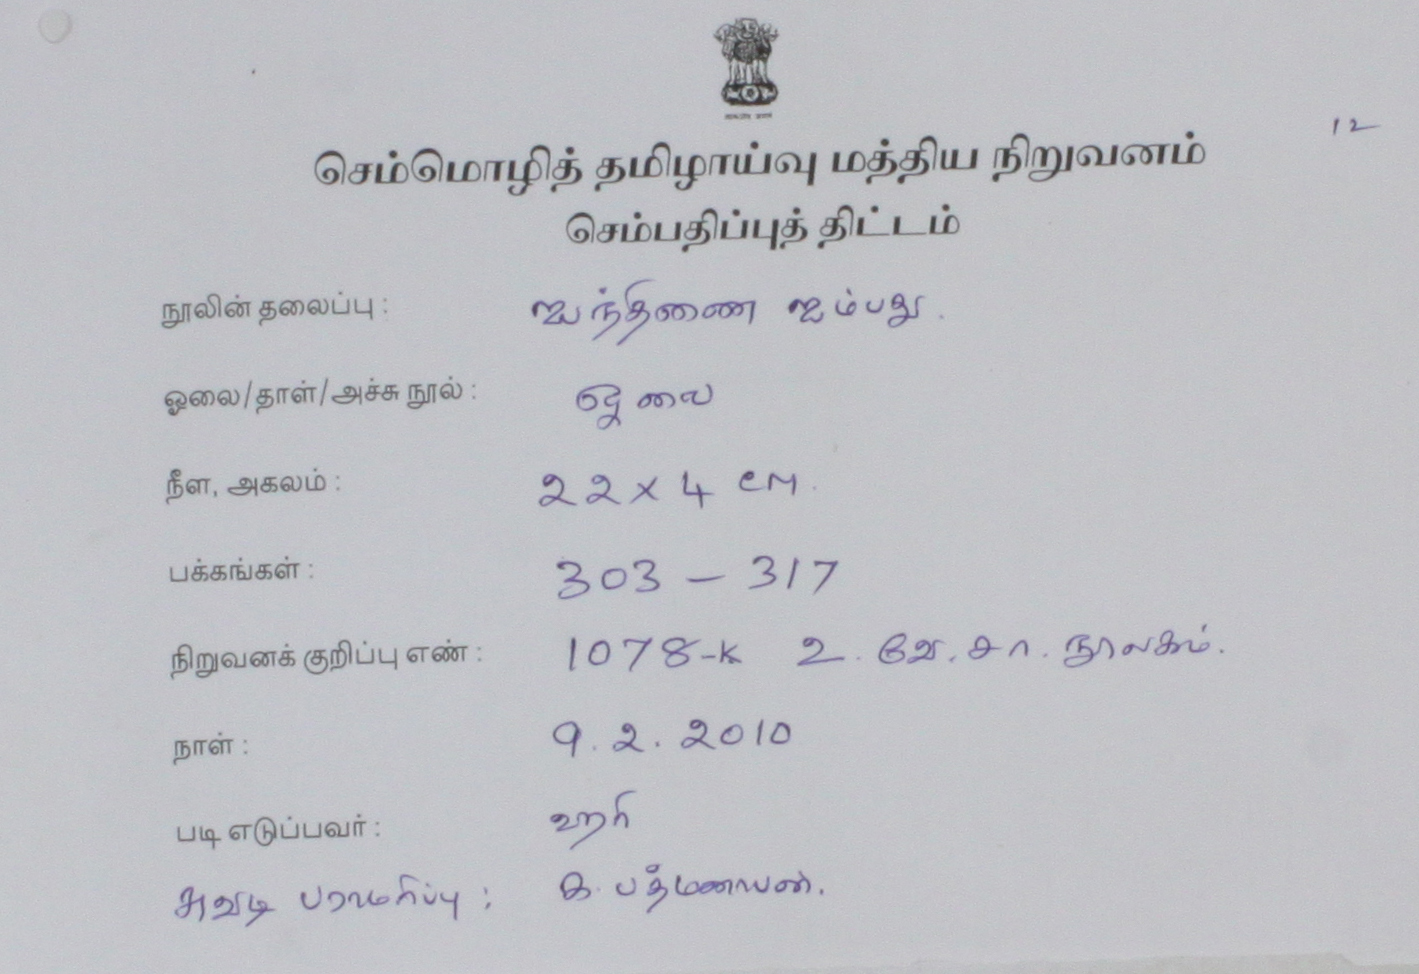 12
செம்மொழித் தமிழாய்வு மத்திய நிறுவனம்
செம்பதிப்புத் திட்டம்
நூலின் தலைப்பு : ஐந்திணை ஐம்பது.
ஓலை/தாள்/அச்சு நூல் : ஓலை
நீள, அகலம் : 22 x 4 cm.
பக்கங்கள் : 303 – 317
நிறுவனக் குறிப்பு எண் : 1078-K உ. வே. சா. நூலகம்.
நாள் : 9. 2. 2010
படி எடுப்பவர் : ஹரி
சுவடி பராமரிப்பு : க. பத்மணாபன்.